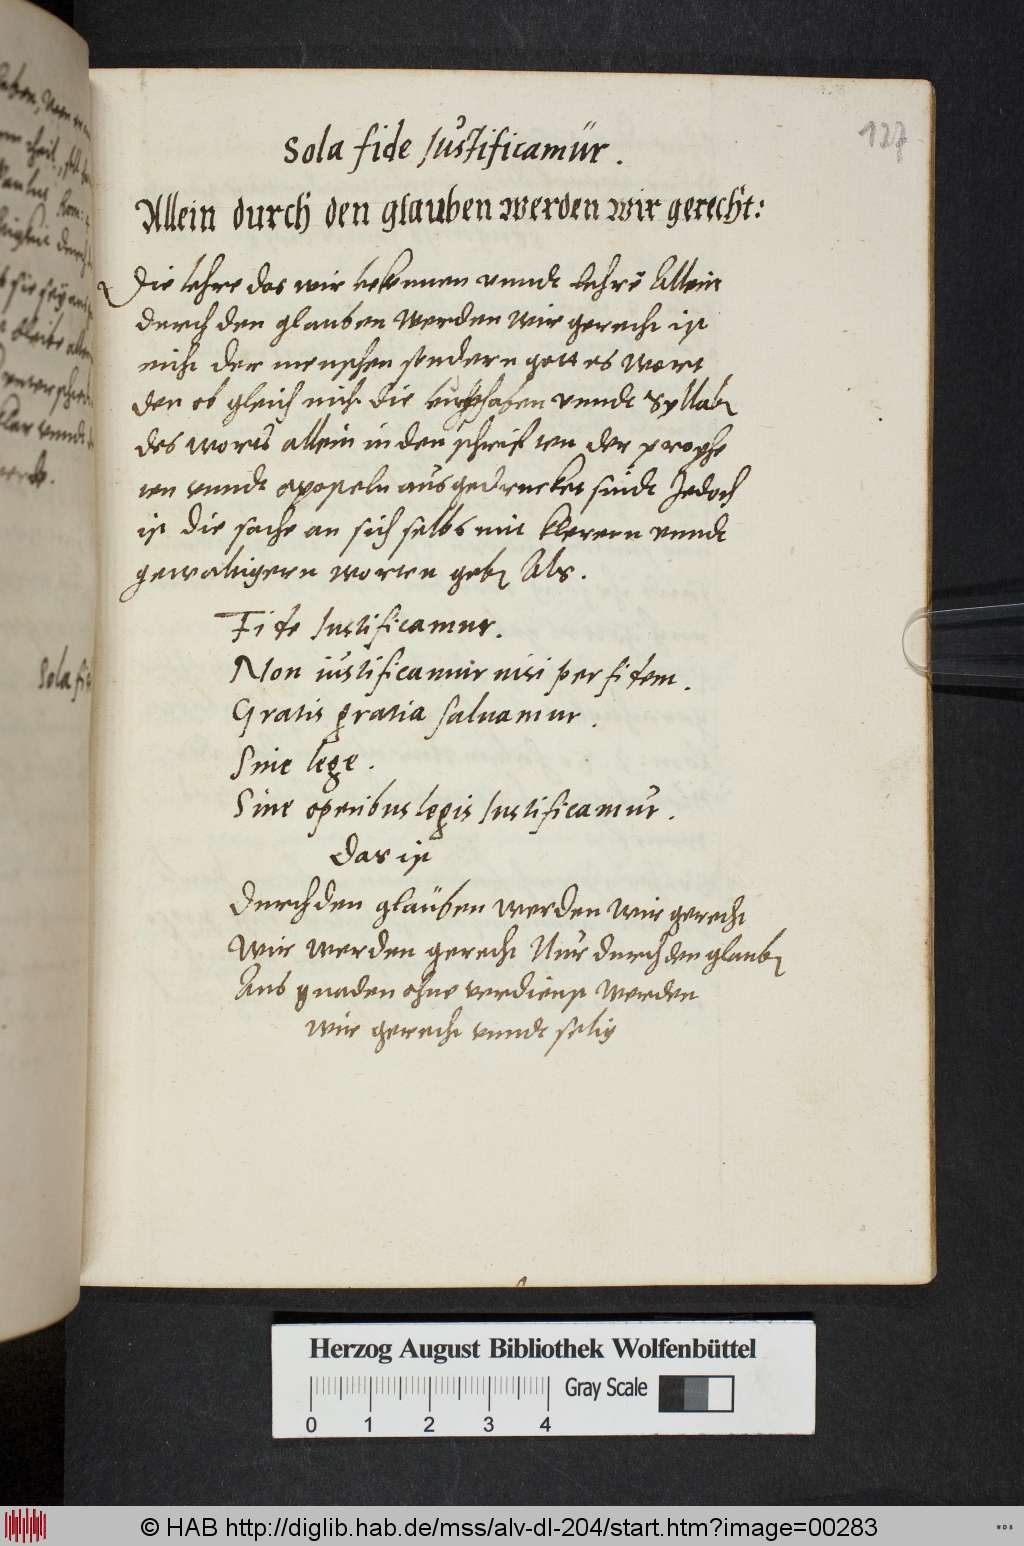 127
Sola fide Justificamür.
Allein durch den glauben werden wir gerecht:
Die lehre das wir bekennen vnndt lehrē Allein
durch den glauben werden wir gerecht ist
nicht der menschen sondern gottes wort
den ob gleich nicht die buchstaben vnndt Syllabn
des worts allein in den schriften der prophe
ten vnndt aposteln ausgedrucket sindt Jedoch
ist die sache an sich selbs mit klerern vnndt
gewaltigern worten gebn Als.
Fide Justificamur.
Non iustificamur nisi per fidem.
Gratis gratia saluamur.
Sine lege.
Sine operibus legis Justificamur.
Das ist
Durch den glauben werden wir gerecht
Wir werden gerecht Nur durch den glaubn
Aus gnaden ohne verdienst werden
wir gerecht vnndt selig
Sola fi
Herzog August Bibliothek Wolfenbüttel
Gray Scale
0 1 2 3 4
© HAB http://diglib.hab.de/mss/alv-dl-204/start.htm?image=00283